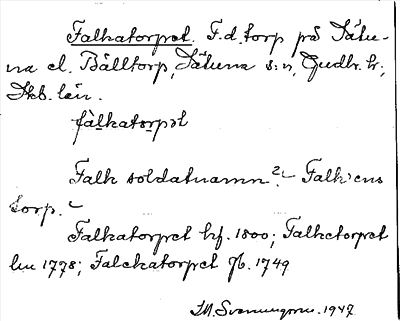 Falkatorpet. F.d. torp på Sätu-
na el. Bälltorp, Sätuna s:n, Gudh. h:,
Skb. län.
fàlkatorpət
Falk soldatnamn?. – Falk'ens
torp. –
Falkatorpet hf. 1800; Falketorpet
hu 1778; Falckatorpet fb. 1749